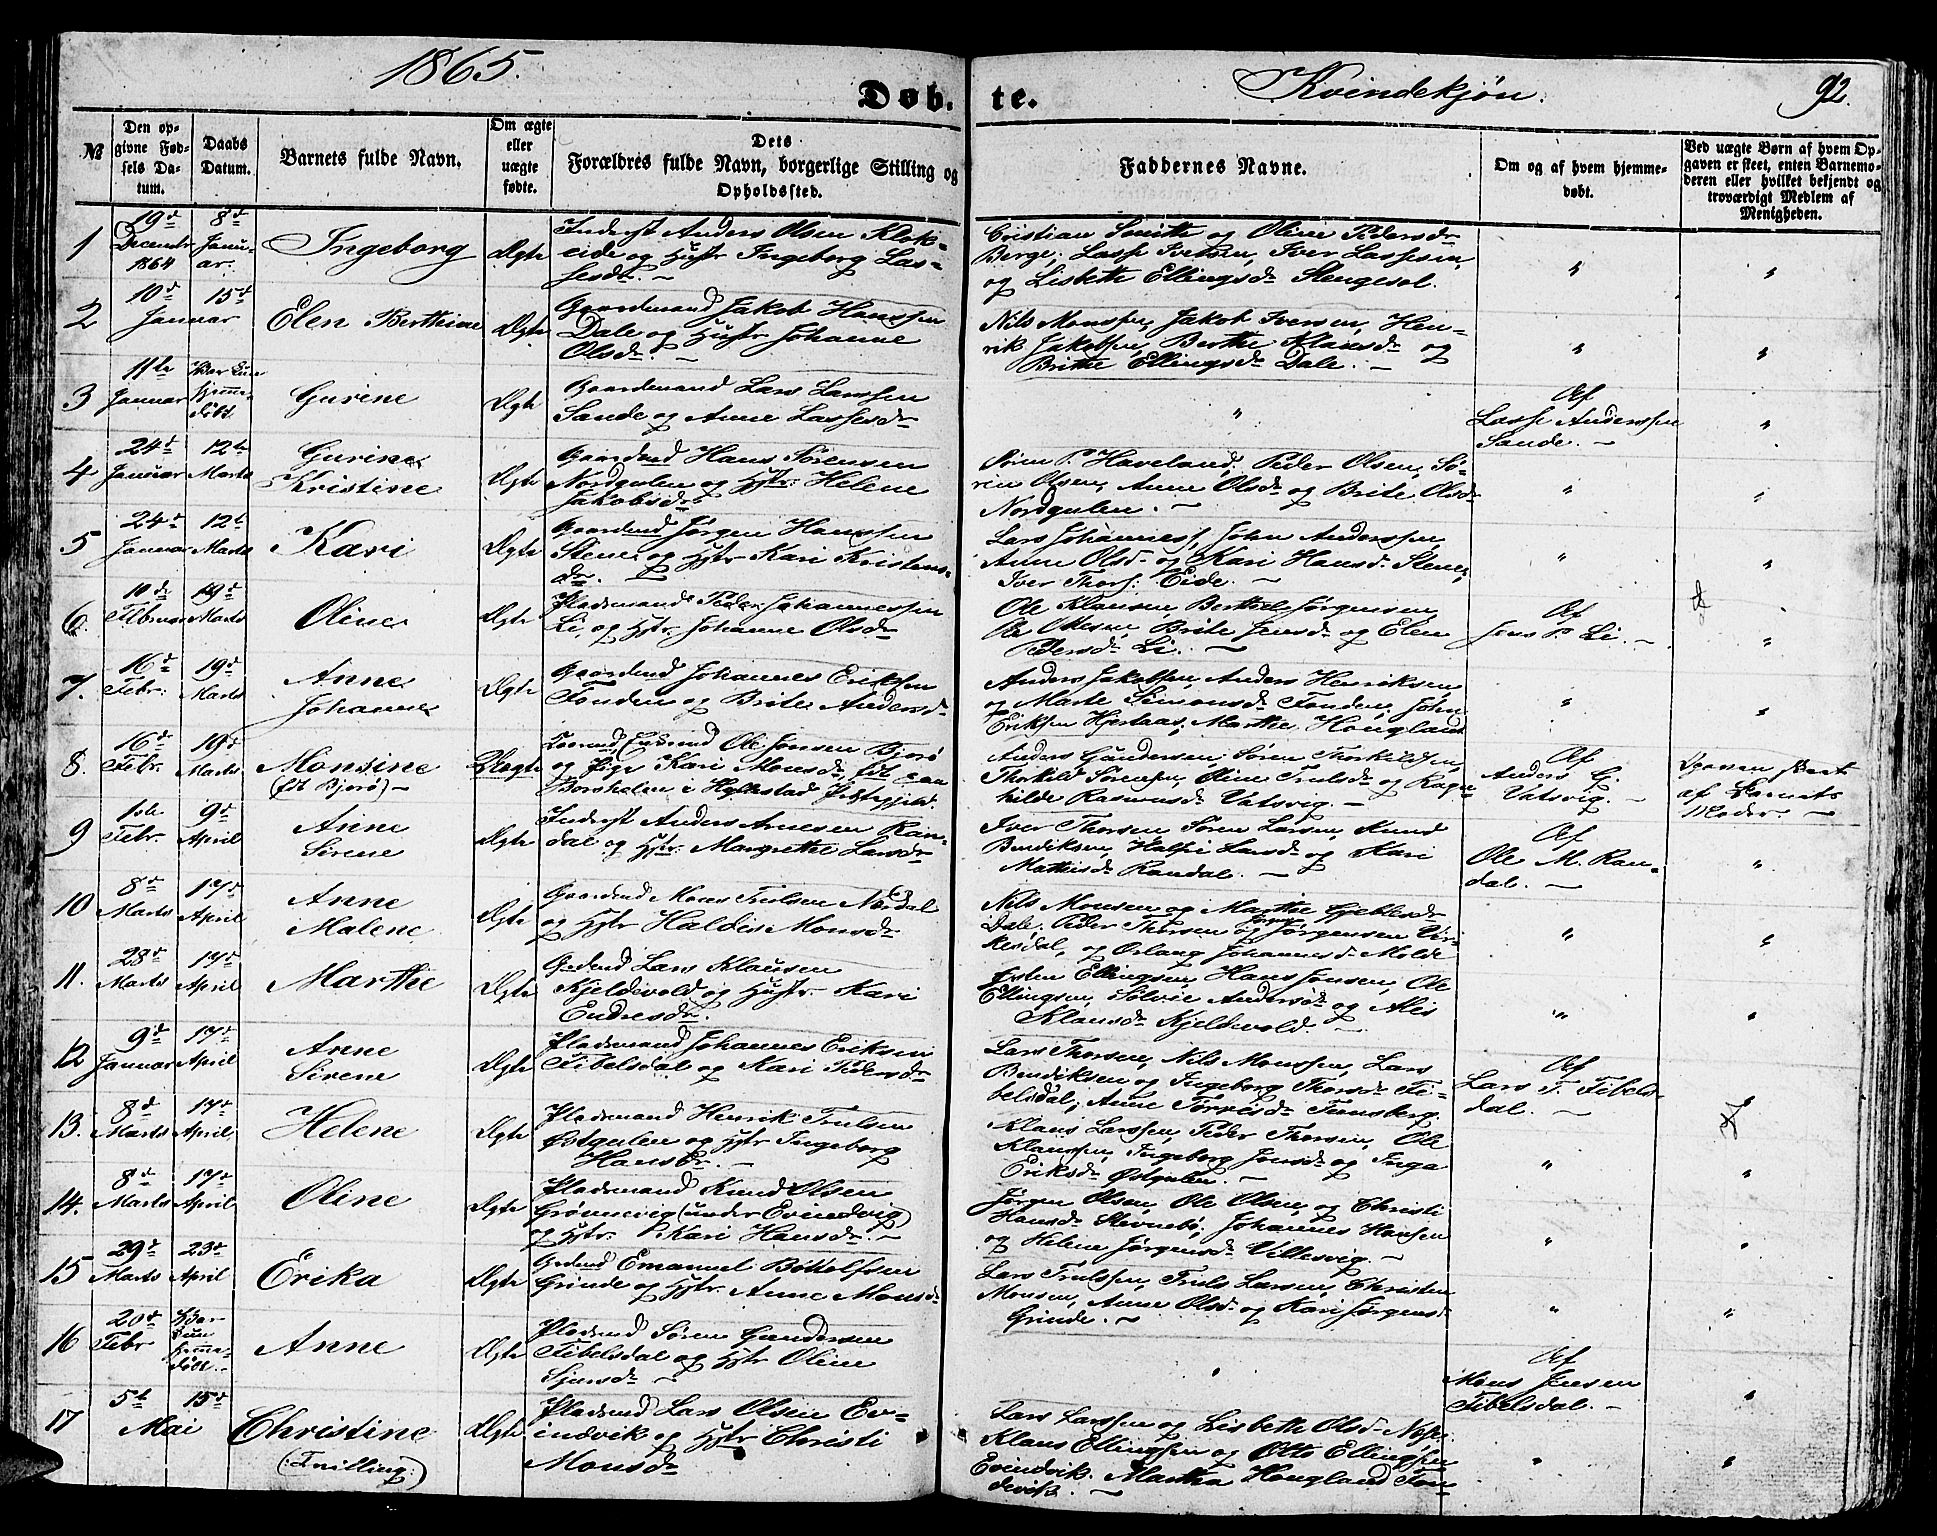 1865.
Døb.
te.
Kvindekjøn.
92.
№
Den op-
givne Fød-
sels Da-
tum.
Daabs
Datum.
Barnets fulde Navn.
Om ægte
eller
uægte
fødte.
Dets
Forældres fulde Navn, borgerlige Stilling og
Opholdssted.
Faddernes Navne.
Om og af hvem hjemme-
døbt.
Ved uægte Børn af hvem Op-
gaven er skeet, enten Barnemo-
deren eller hvilket bekjendt og
troværdigt Medlem af
Menigheden.
1
19de
Decembr
1864
8de
Janu-
ar.
Ingeborg
Ægte
Inderst Anders Olsen Klok-
eide og Hustr Ingeborg Las-
sesdr. –
Cristian Smith og Oline Pedersdr
Berge; Lasse Iversen, Iver Lassesen,
og Lisbeth Ellingsdr Stengesol.
2
10de 15de
Januar
Elen Berthine
Ægte
Gaardmand Jakob Hanssen
Dale og Hustr Johanne
Olsdr –
Nils Monssen, Jakob Iversen, Hen-
rik Jakobsen, Berthe Klausdr og
Brithe Ellingsdr Dale. –
3
11te
Januar
Hjemme-
døbt
Gurine
Ægte
Gaardmand Lars Larssen
Sande og Anne Lassesdr
Af
Lasse Anderssen
Sande. –
4
24de
Januar
12te
Marts
Gurine
Kristine
Ægte
Gaardmd Hans Sørensen
Nordgulen og Hstr. Helene
Jakobsdr
Søren P. Haveland, Peder Olsen, Sø-
ren Olsen, Anne Olsdr og Brite Olsdr
Nordgulen. –
5
24de
Januar
12te
Marts
Kari
Ægte
Gaardmd Jørgen Hanssen
Stene og Hstr Kari Kristens-
dr. –
Lars Johanness, John Anderssen,
Anne Olsdr og Kari Hansdr Stene,
Iver Thors: Eide. –
6.
10de
Februar
19de
Marts
Oline
Ægte
Pladsmand Peder Johannessen
Li, og Hstr Johanne Olsdr
Ole Klausen Berthel Jørgensen,
Ole Ottesen, Brite Jensdr og Elen
Pedersdr Li. –
Af
Jens P. Li. –
7.
16de
Febr:
19de
Marts
Anne
Johanne
Ægte
Gaardmd Johannes Eriksen
Fonden og Brite Andersdr
Anders Jakobsen, Anders Henriksen
og Marte Simonsdr Fonden, John
Eriksen Hjertaas, Marthe Hougland
8.
16de
Febr.
19de
Marts
Monsine
(fdt Bjorø) –
Uægte
Ole Jonsen Bjorø
og Pige Kari Monsdr
Borsholm i Hyllestad Præstegjeld.
Anders Gundersen, Søren Thorkildsen,
Thorkild Sørensen, Oline Trulsdr og Ragn-
hilde Rasmusdr Vatsvig. –
Af
Anders G.
Vatsvig. –
Opgaven skeet
af Barnets
Moder. –
9
1ste
Febr.
9de
April
Anne
Sirene
Ægte
Inderst Anders Arnesen Ran-
dal og Hstr. Margrethe Larsdr
Iver Thorsen Søren Larsen, Knud
Bendiksen, Larsdr og Kari
Mathisdr Randal. –
Af
Ole M. Ran-
dal. –
10
8de
Marts
17de
April
Anne
Malene
Ægte
Gaardmd Mons Trulsen Nordal
og Hstr Haldis Monsdr
Nils Monsen og Marthe Gjeblesdr
Dale, Peder Thorsen og Jørgensen Vir-
kesdal, og Johannesdr Molde
11.
28de
Marts
17de
April
Marthe
Ægte
Lars Klausen
Kjeldevold og Hustr. Kari
Endresdr.
Ellingsen, Hans Jonsen, Ole
Ellingsen, Sølvie Andersdr og Alis
Klausdr Kjeldevold. –
12
9de
Januar
17de
April
Anne
Sirene
Ægte
Pladsmand Johannes Eriksen
Tibelsdal og Kari Pedersdr
Lars Thorsen, Nils Monssen, Lars
Bendiksen og Ingeborg Thorsdr Ti-
belsdal, Anne Torrisdr
Af
Lars T. Tibels-
dal. –
13.
8de
Marts
17de
April
Helene
Ægte
Pladsmand Henrik Trulsen
Østgulen og Hstr Ingeborg
Hansdr. –
Klaus Larssen, Peder Thorsen, Ole
Klaussen, Ingeborg Jonsdr og Inga
Eriksdr Østgulen. –
14.
8de
Marts
17de
April
Oline
Ægte
Pladsmand Knud Olsen
Grønnevig (under Evindvig)
og Hstr. Kari Hansdr. –
Jørgen Olsen, Ole Olsen, og Christi
Hansdr Stevnebø, Johannes Hansen
og Helene Jørgensdr Villesvig. –
15
29de
Marts
23de
April
Erika
Ægte
Emanuel Bottolfsen
Grinde og Hstr. Anne Monsdr
Lars Trulssen, Truls Larsen, Christen
Monsen, Anne Olsdr og Kari Jørgensdr
Grinde. –
16
20de
Febr
Hjemme-
døbt. –
Anne
Ægte
Pladsmd Søren Gundersen
Tibelsdal og Hstr Oline
Sjursdr –
Af
Mons Jensen
Tibelsdal. –
17
5te 15de
Mai
Christine
(: Tvilling :)
Ægte
Pladsmd Lars Olsen Ev-
indvik og Hstr Christi
Monsdr
Lars Larssen og Lisbeth Olsdr
Klaus Ellingsen og Otto Ellingsen
Evindvik. Martha Hougland